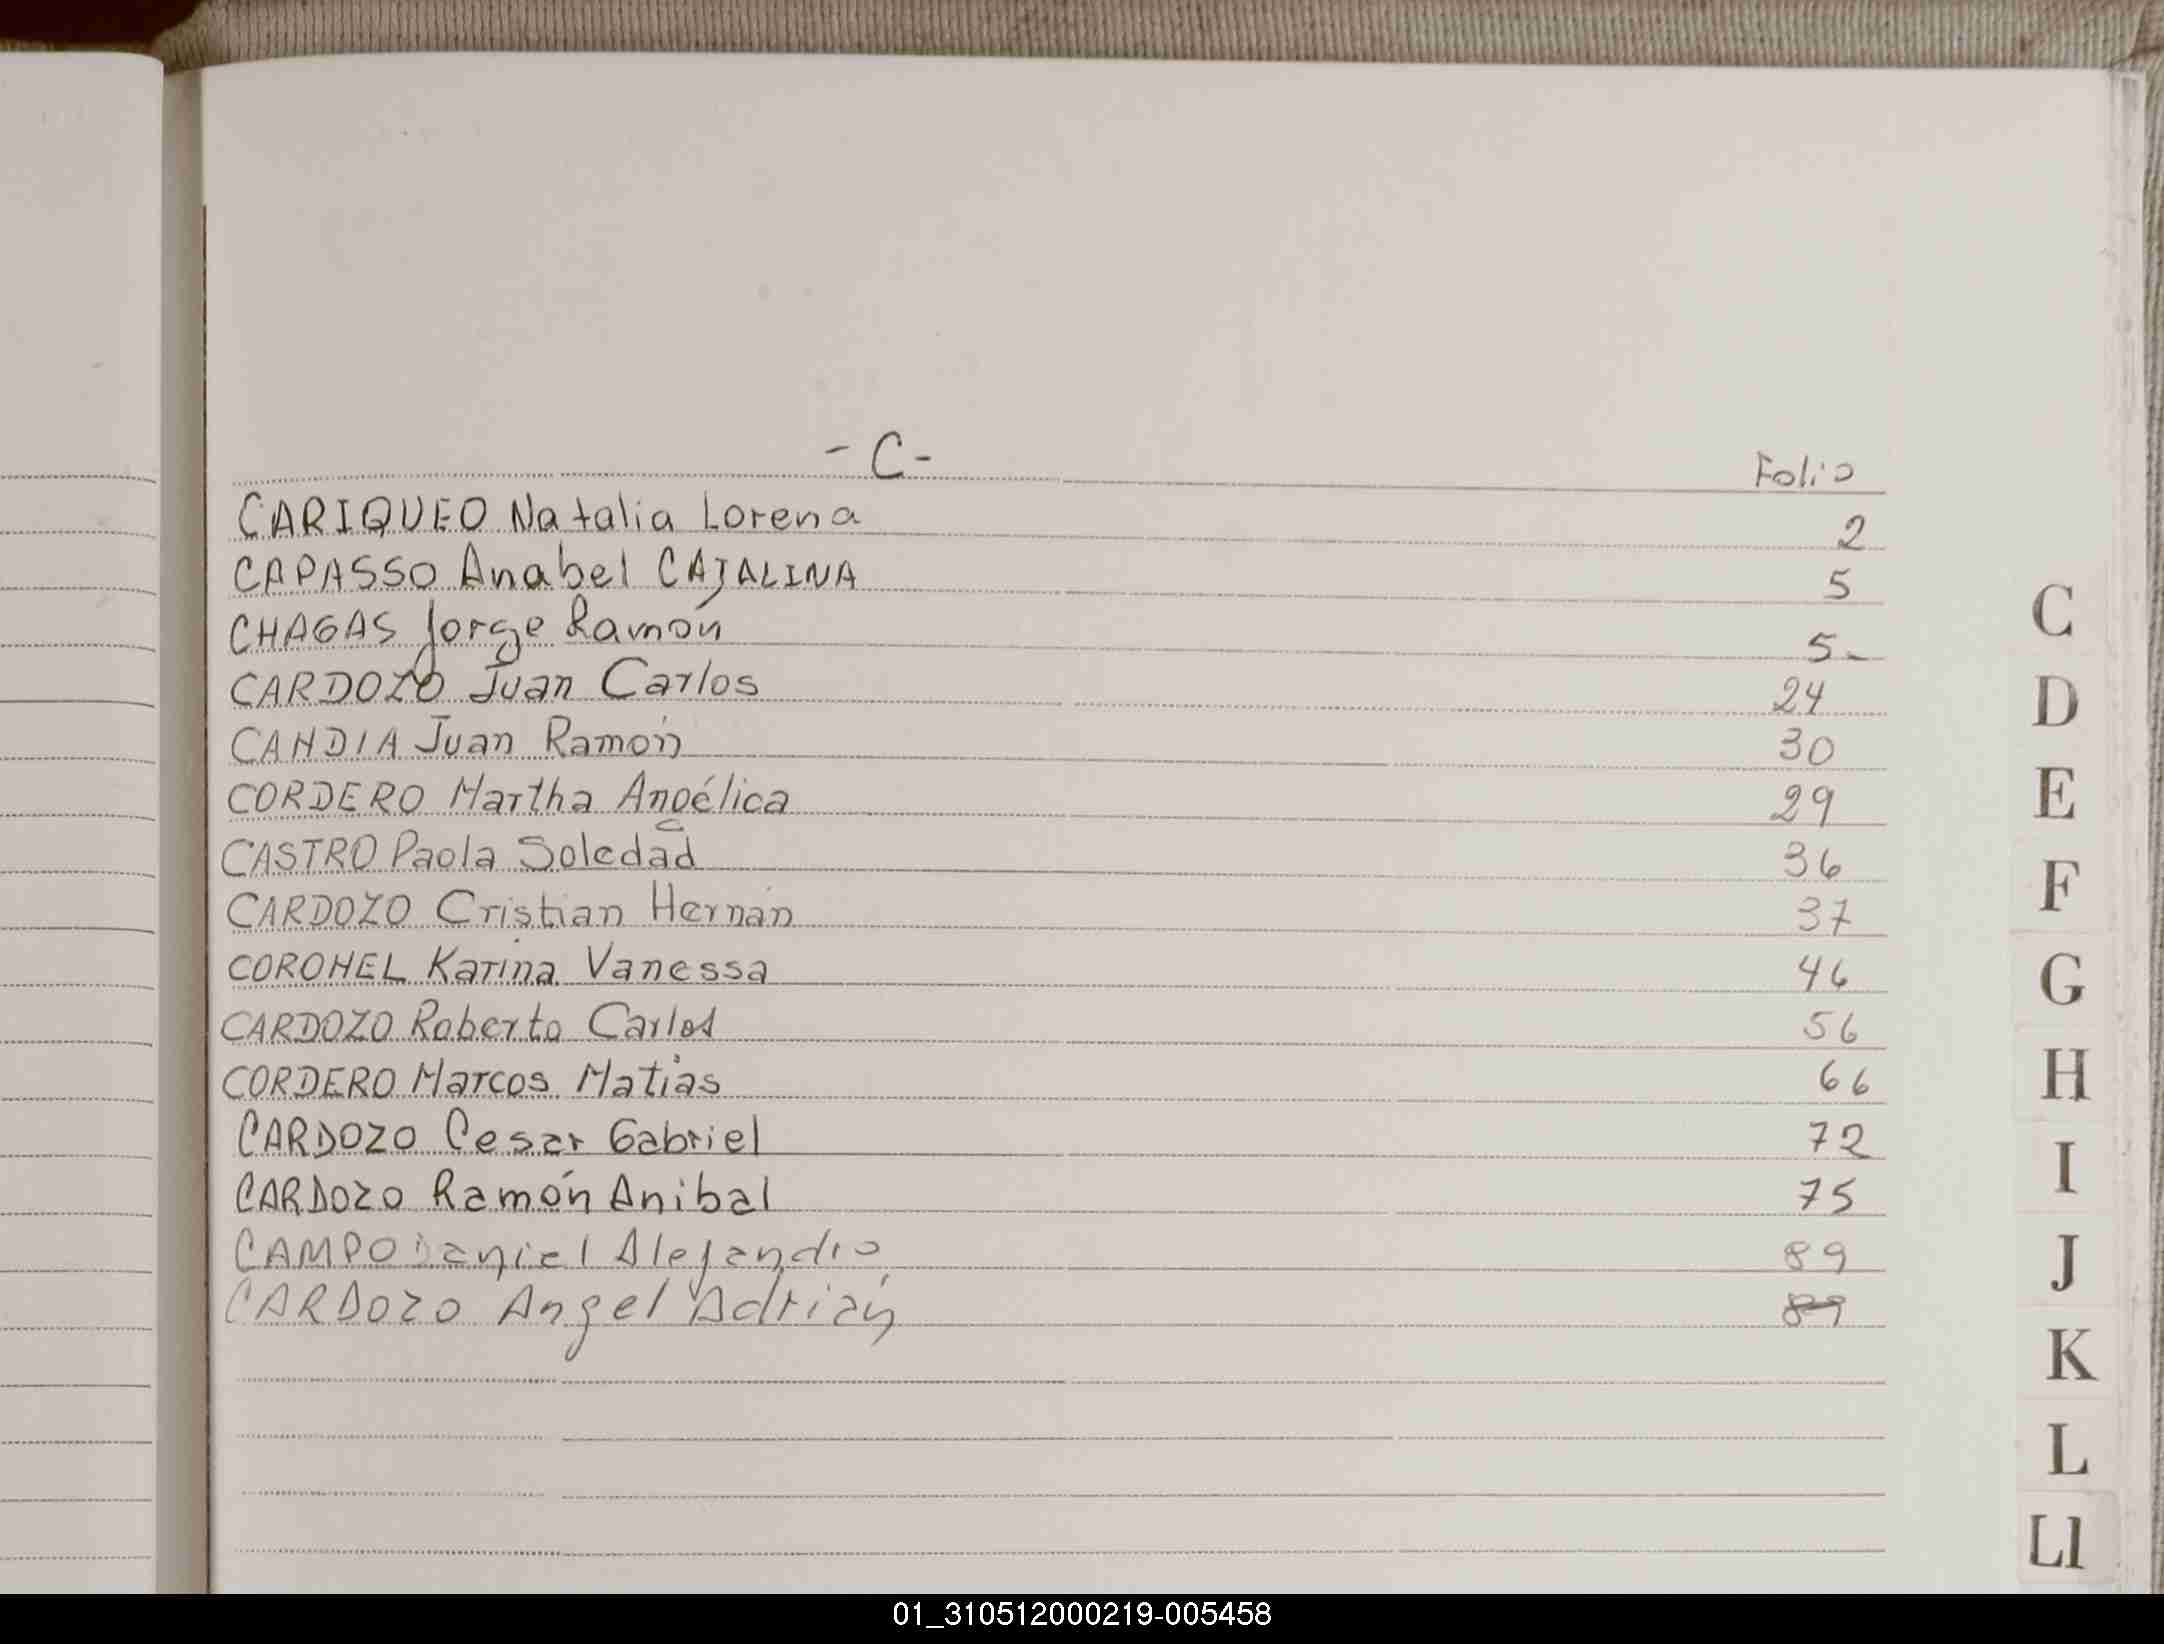 - C -
Folio
CARIQUEO Natalia Lorena 2
CAPASSO Anabel CATALINA 5
CHAGAS Jorge Ramón 5-
CARDOZO Juan Carlos 24
CANDIA Juan Ramón 30
CORDERO Martha Angélica 29
CASTRO Paola Soledad 36
CARDOZO Cristian Hernán 37
CORONEL Karina Vanessa 46
CARDOZO Roberto Carlos 56
CORDERO Marcos Matías 66
CARDOZO Cesar Gabriel 72
CARDOZO Ramón Anibal 75
CAMPO Daniel Alejandro 89
CARDOZO Angel Adrián 89
C
D
E
F
G
H
I
J
K
L
Ll
01_310512000219-005458